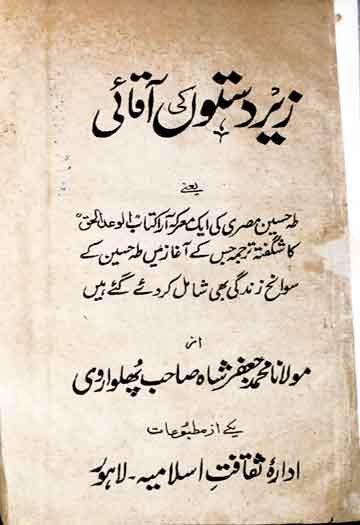 زیر دستوں کی آقائی
یعنے
طہ حسین مصری کی ایک معرکہ آرا کتاب الوعد الحق
کا شگفتہ ترجمہ جس کے آغاز میں طہ حسین کے
سوانح زندگی بھی شامل کر دئے گئے ہیں
از
مولانا محمد جعفر شاہ صاحب پھلواروی
یکے از مطبوعات
ادارۂ ثقافتِ اسلامیہ - لاہور